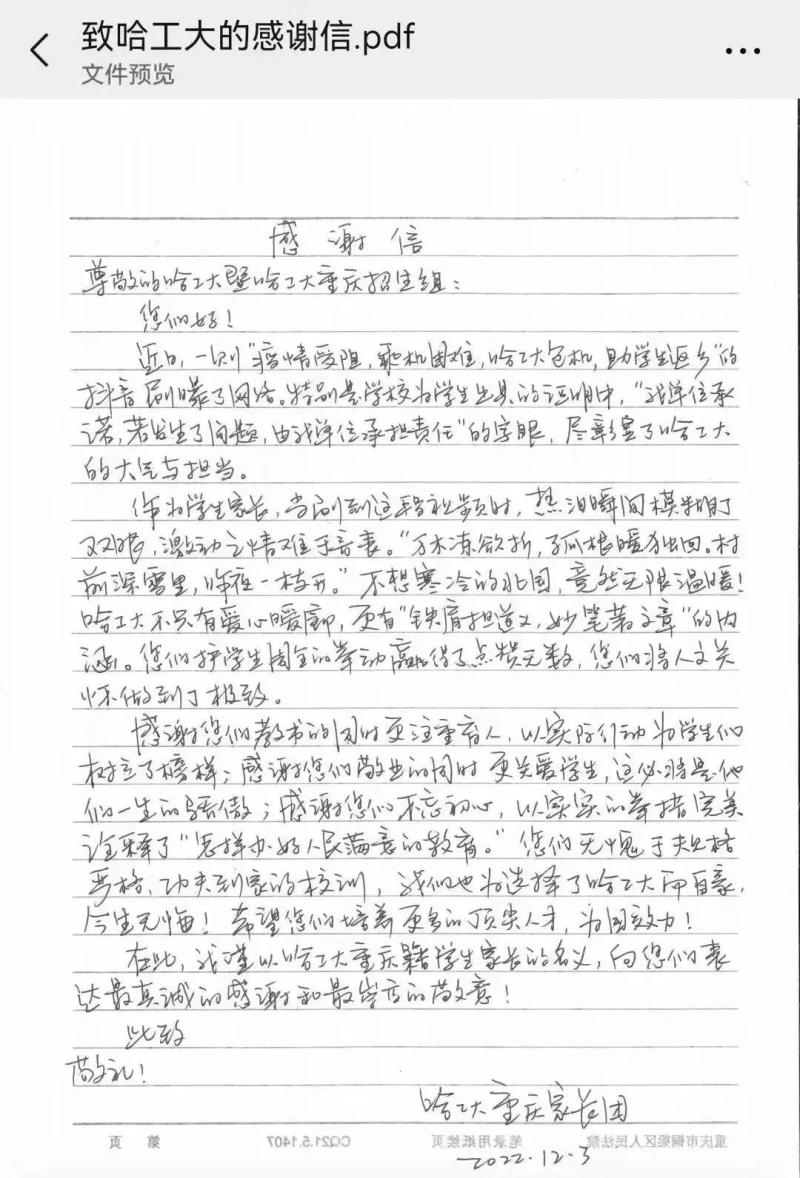 致哈工大的感谢信.pdf
文件预览
感谢信
尊敬的哈工大暨哈工大重庆招生组：
您们好！
近日，一则“疫情受阻，乘机困难，哈工大包机，助学生返乡”的
抖音刷曝了网络。特别是学校为学生出具的证明中，“我单位承
诺，若发生了问题，由我单位承担责任”的字眼，尽彰显了哈工大
的大气与担当。
作为学生家长，当刷到这段视频时，热泪瞬间模糊了
双眼，激动之情难于言表。“万木冻欲折，孤根暖独回。村
前深雪里，昨夜一枝开。”不想寒冷的北国，竟然无限温暖！
哈工大不只有爱心暖廊，更有“铁肩担道义，妙笔著文章”的内
涵。您们护学生周全的举动赢得了点赞无数，您们将人文关
怀做到了极致。
感谢您们教书的同时更注重育人，以实际行动为学生们
树立了榜样；感谢您们敬业的同时更关爱学生，这必将是他
们一生的骄傲；感谢您们不忘初心，以实实的举措完美
诠释了“怎样办好人民满意的教育。”您们无愧于规格
严格，功夫到家的校训，我们也为选择了哈工大而自豪，
今生无悔！希望您们培养更多的顶尖人才，为国效力！
在此，我谨以哈工大重庆籍学生家长的名义，向您们表
达最真诚的感谢和最崇高的敬意！
此致
敬礼！
哈工大重庆家长团
重庆市铜梁区人民法院 笔录用纸续页 CQ21.5.1407 第 页
2022.12.3